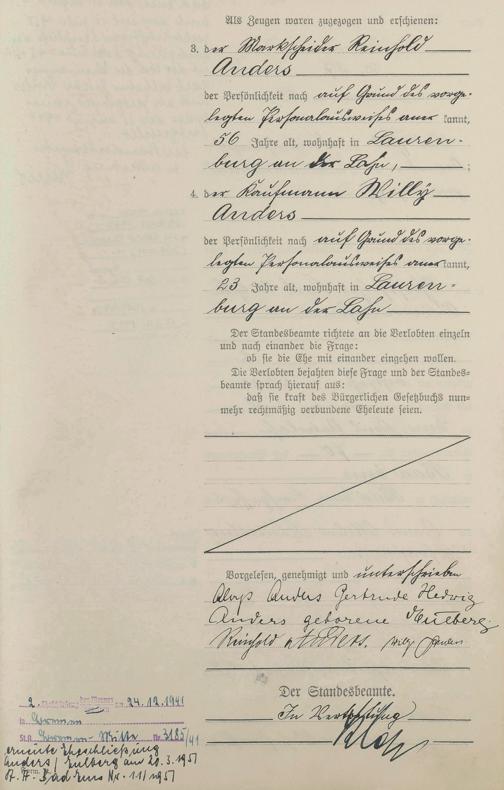 Als Zeugen waren zugezogen und erschienen:
3. der Markscheider Reinhold
Anders
der Persönlichkeit nach auf Grund des vorge-
legten Personalausweises aner kannt,
56 Jahre alt, wohnhaft in Lauren-
burg an der Lahn, ;
4. der Kaufmann Willy
Anders
der Persönlichkeit nach auf Grund des vorge-
legten Personalausweises aner kannt,
23 Jahre alt, wohnhaft in Lauren-
burg an der Lahn
Der Standesbeamte richtete an die Verlobten einzeln
und nach einander die Frage:
ob sie die Ehe mit einander eingehen wollen.
Die Verlobten bejahten diese Frage und der Standes-
beamte sprach hierauf aus:
daß sie kraft des Bürgerlichen Gesetzbuchs nun-
mehr rechtmäßig verbundene Eheleute seien.
Vorgelesen, genehmigt und unterschrieben
Anders Gertrude Hedwig
Anders geborene
Reinhold Anders. Willy Anders
Der Standesbeamte.
In Vertretung
2. 24.12.1941
in Bremen
St.A. Bremen-Mitte Nr. 3185/41
erneute Eheschließung
Anders / am 20.3.1951
St. A. Bad Ems Nr. 11/1951